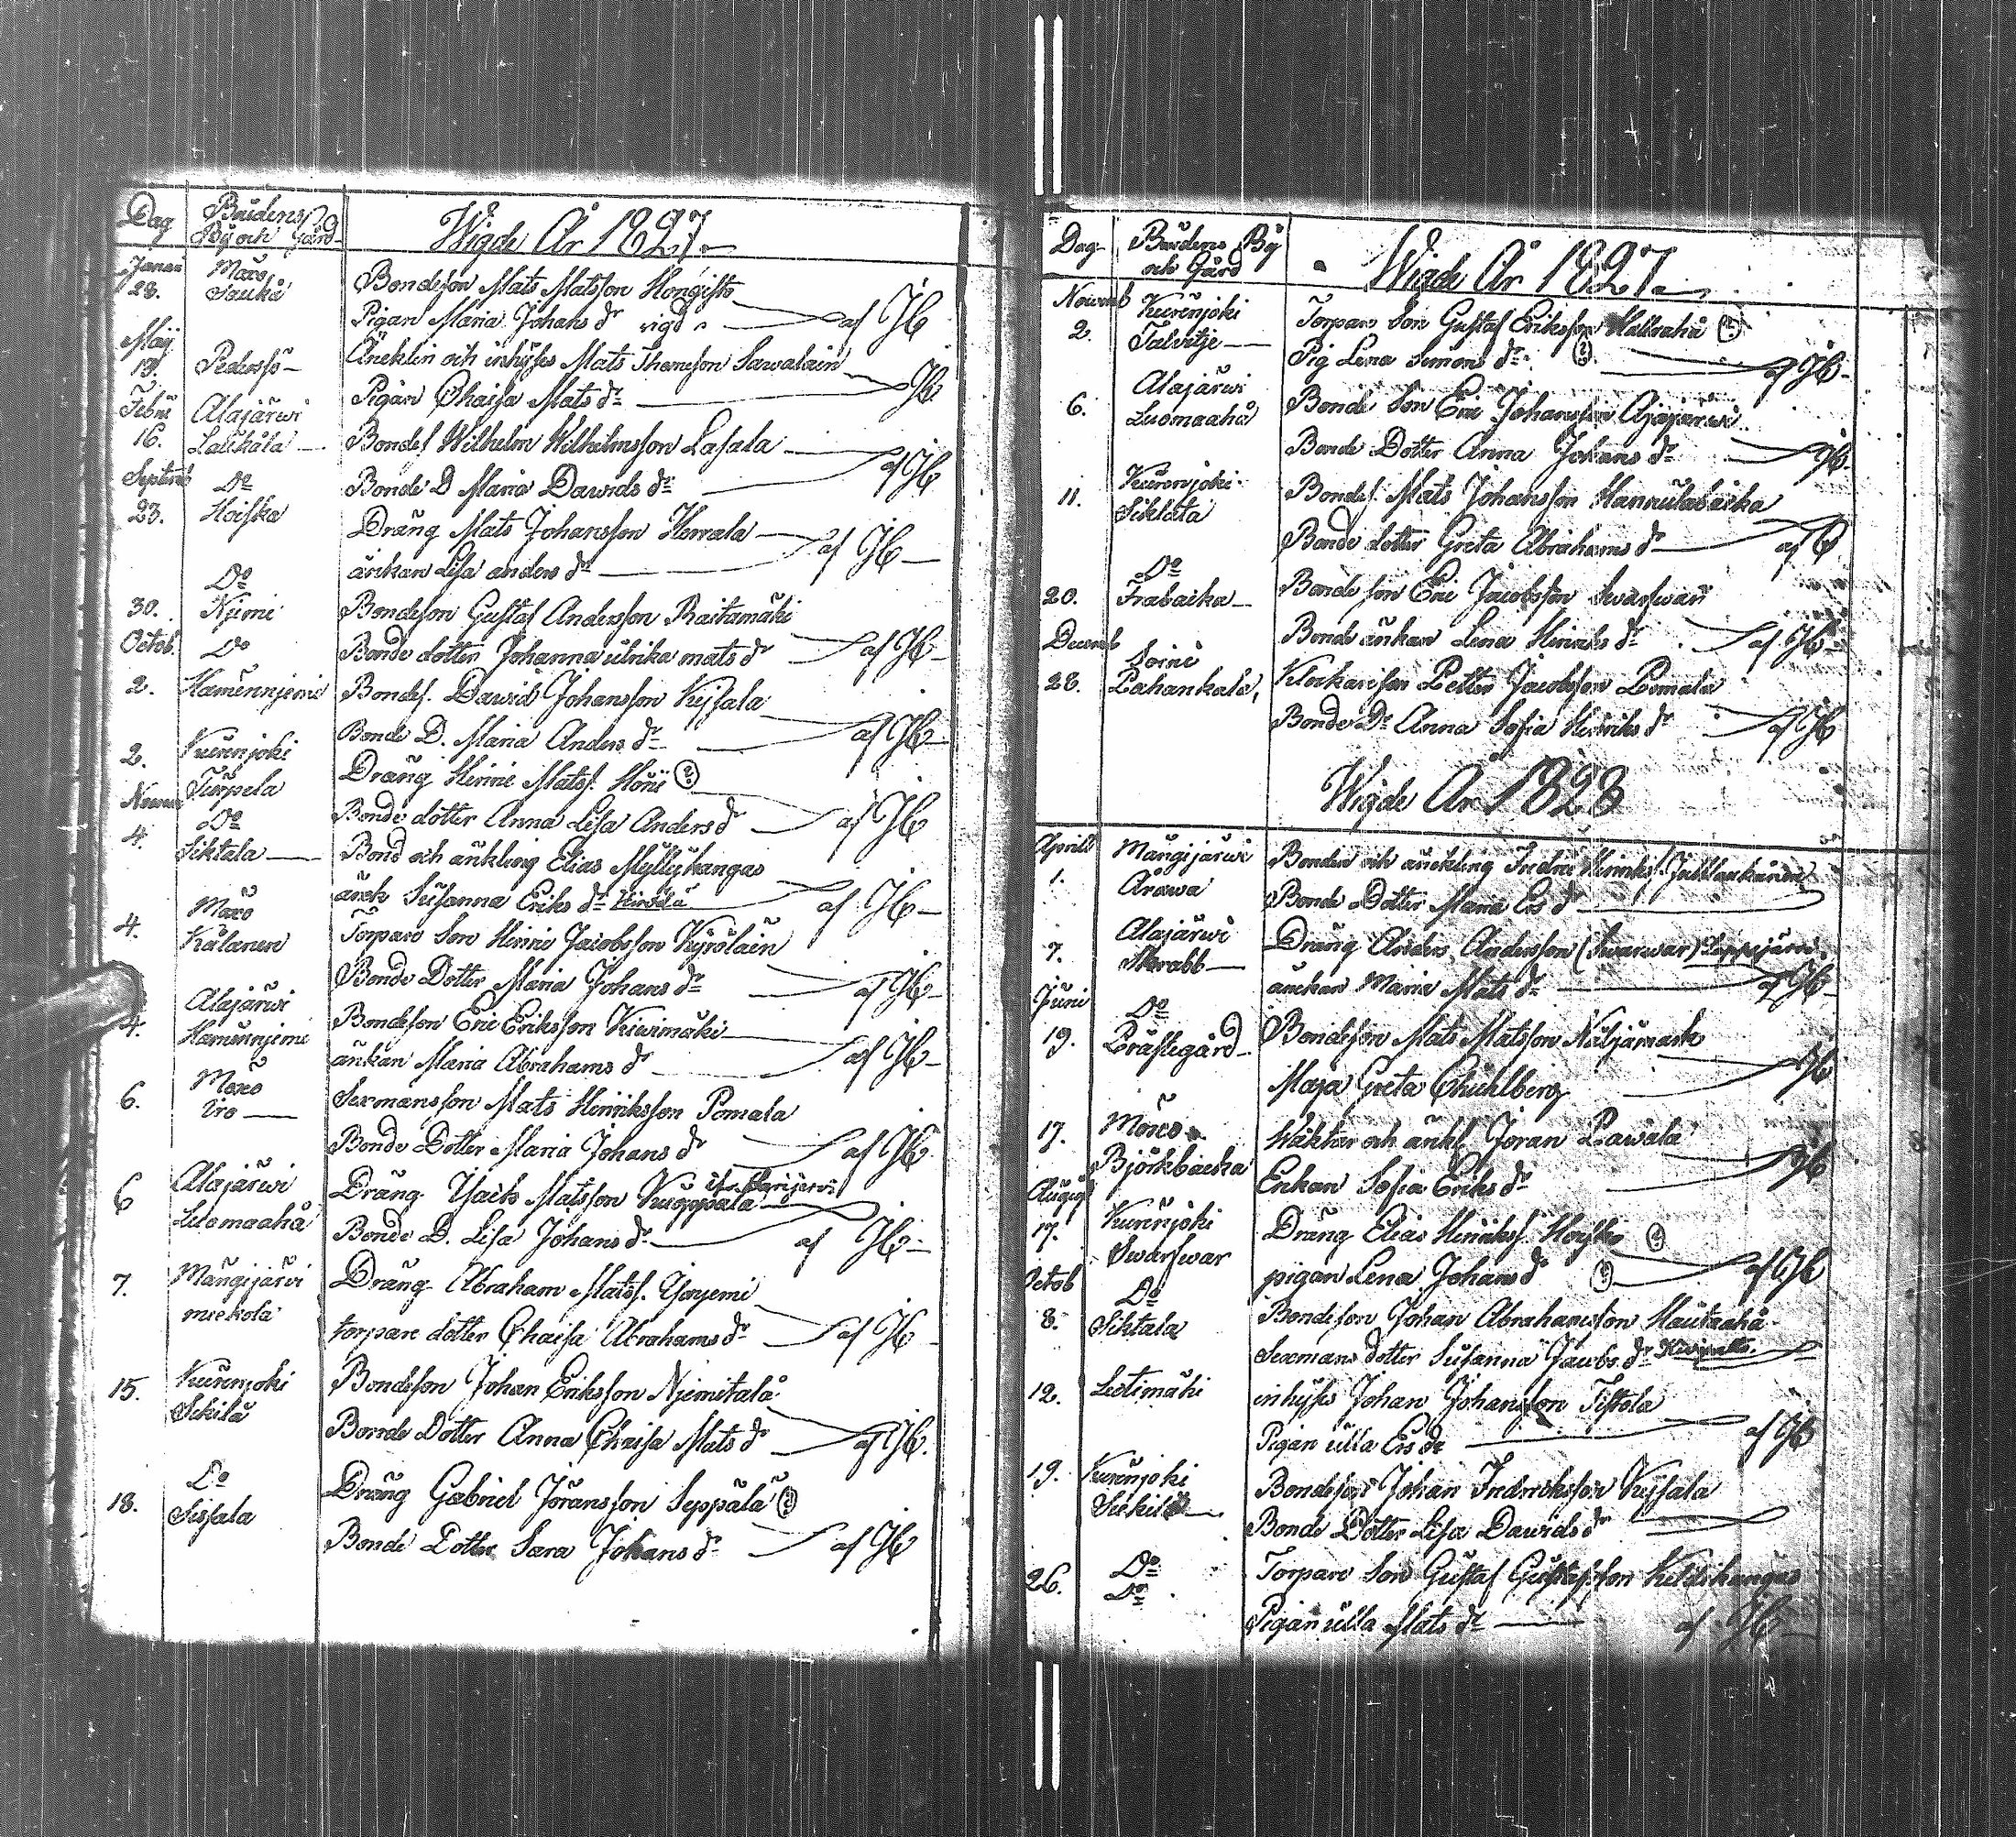 Dag
Brudens
By och Gård
Wigde År 1827.
Januari
28.
Maxo
Saukå
Bondeson Mats Matsson Hongisto
Pigan Maria Johans dr
af JH
Maÿ
13.
Pedersö
Äncklin och inhÿses Mats Thomeson Sawalain
Pigan Chaisa Mats dr
JH
Febru
16.
Alajärwi
Laukala
Bondes Wilhelm Wilhelmsson Lasala
Bonde D Maria Dawids dr
af JH
Septemb
23.
Do
Hoiska
Dräng Mats Johansson Herrala
änkan Lisa anders dr
af JH
30.
Do
Niemi
Bondeson Gustaf Andersson Raitamäki
Bonde dotter Johanna ulrika mats dr
af JH
Octob.
2.
Do
Hamennjemi
Bondes. Dawid Johansson Kejsala
Bonde D. Maria Anders dr
af JH
2.
Kurenjoki
Turpela
Dräng Hinric Matss.
Bonde dotter Anna Lisa Anders dr
af JH
Novem
4.
Do
Siktala
Bond och änkling Elias Myllÿkangas
änck Susanna Eriks dr
af JH
4.
Maxo
Kålanen
Torpare Son Hinric Jacobsson Kÿrölain
Bonde Dotter Maria Johans dr
af JH
4.
Alajärwi
Hamennjemi
Bondeson Eric Eriksson Kiwimäki
änkan Maria Abrahams dr
af JH
6.
Moxo
iro
Sexmansson Mats Henriksson Pomala
Bonde Dotter Maria Johans dr
af JH
6
Alajärwi
Luomaahå
Dräng Isack Matsson Kuoppala
Bonde D. Lisa Johans dr
af JH
7.
Mangijärwi
miekola
Dräng Abraham Matss.
torpare dotter Chaisa Abrahams dr
af JH
15.
Kurenjoki
Sikilä
Bondeson Johan Eriksson Njemitalå
Bonde Dotter Anna Chaisa Mats dr
af JH.
18.
Do
Sissala
Dräng Gabriel Jöransson Seppälä (2)
Bonde Dotter Sara Johans dr
af JH
Dag
Brudens By
och Gård
Wigde År 1827
Novemb
2.
Kurenjoki
Talvitje
Torpare Son Gustaf Eriksson (2)
Pig Lena Simons dr (2)
af JH
6.
Alajärwi
Luomaahå
Bonde Son Eric Johansson Alajärwi
Bonde Dotter Anna Johans dr
JH
11.
Kurenjoki
Siktala
Bondes. Mats Johansson Hannulabacka
Bonde dotter Greta Abrahams dr
af
20.
Do
Frabacka
Bondeson Eric Jacobsson Swarfwar
Bonde änkan Lena Hinriks dr
af JH
Decemb
28.
Soini
Pahankala,
Klockareson Petter Jacobsson Pomala
Bonde Dr Anna Sofia Henriks dr
af JH
Wigde År 1828
Aprill
1.
Mangijärwi
Arawa
Bonden och änckling Indric Hinrikss.
Bonde Dotter Maria Ers dr
7.
Alajärwi
Skrabb
Dräng Anders Andersson (Swarwar) Leppejärwi
änckan Maria Mats dr
af JH
Juni
19.
Do
Prästegård
Bondeson Mats Matsson Näljämark
Maja Greta Chuhlberg
JH
17.
Moxo
Björkbacka
och änkl. Jöran Pawala
Enkan Sofia Eriks dr
JH
August
17.
Kurenjoki
Swarfwar
Dräng Elias Hinrikss. Hoisko (2)
pigan Lena Johans dr (2)
af JH
Octob
8.
Do
Siktala
Bondeson Johan Abrahamsson Hautaahå
Sexmans dotter Susanna Jacobs dr
12.
Luotimäki
inhÿses Johan Johansson Tistola
Pigan ulla Ers dr
af JH
19.
Kurenjoki
Siekilä
Bondeson Johan Indricksson Kejsala
Bonde Dotter Lisa Dawids dr
26.
Do
Do
Torpare Son Gustaf Gustafsson
Pigan ulla Mats dr
af JH